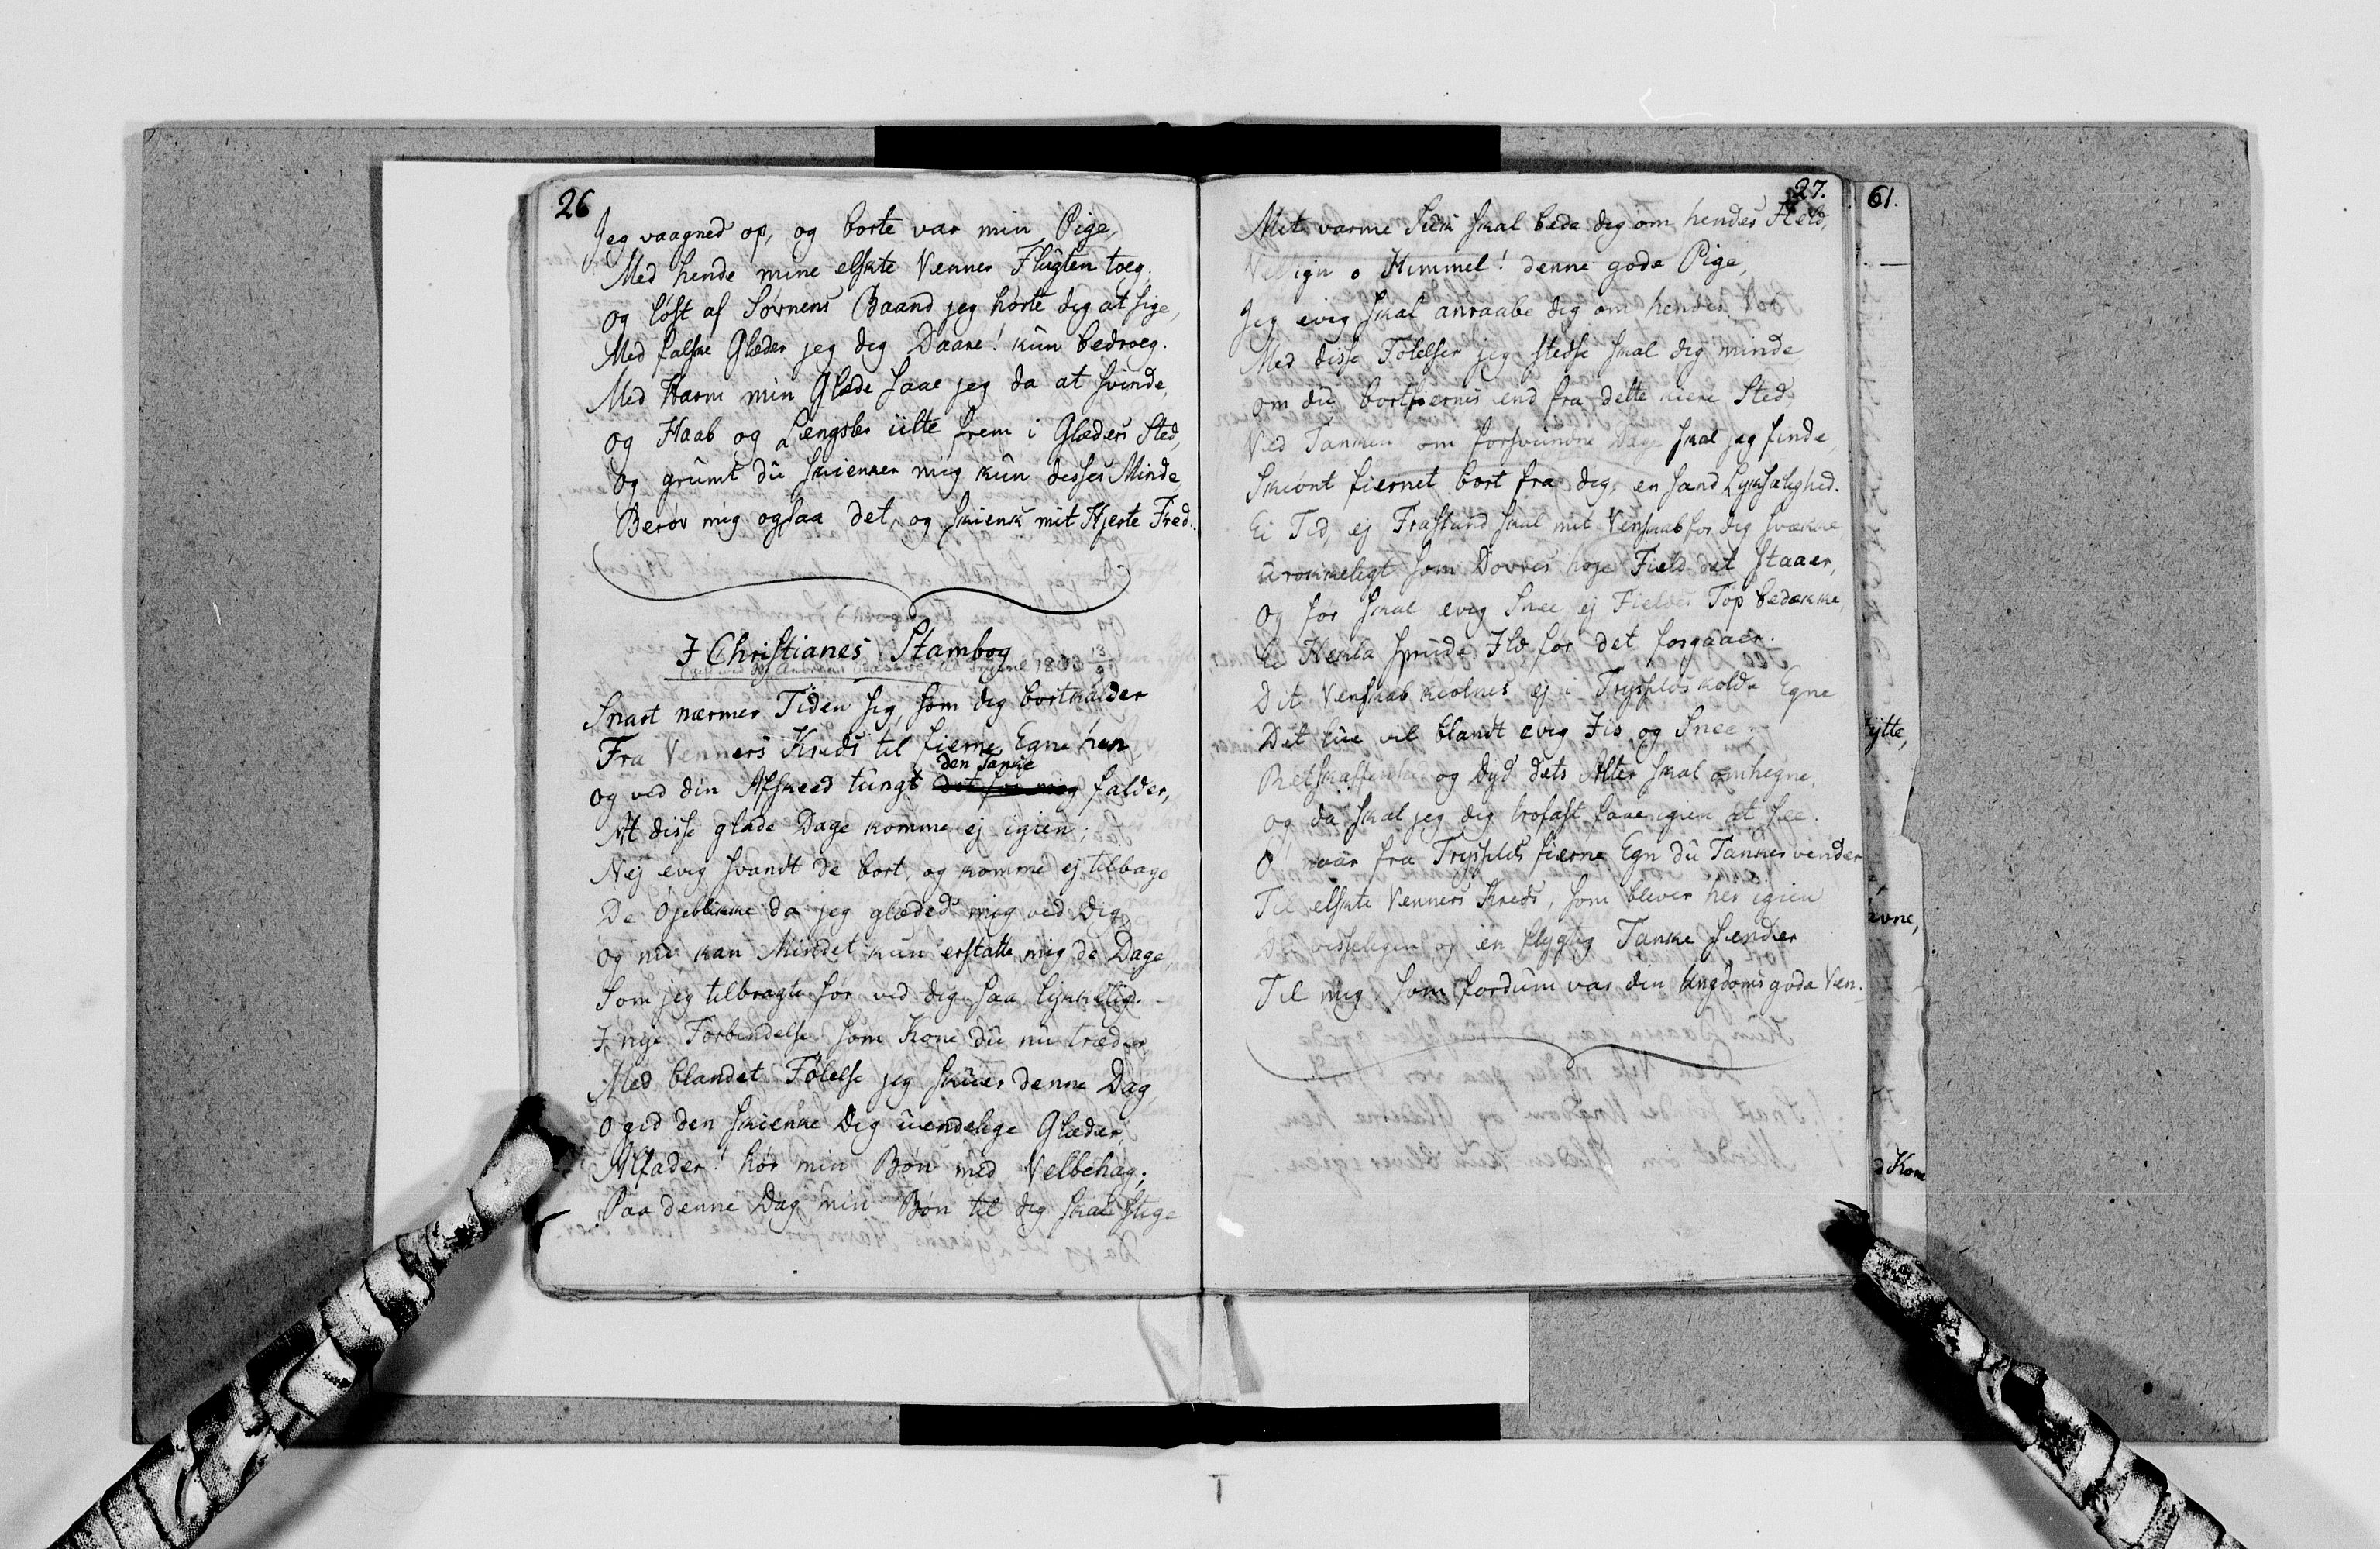 26
Jeg vaagned op, og borte var min Pige,
Med hende mine elskte Venner Flugten toeg.
Og løst af Søvnens Baand jeg hørte dig at sige,
Med falske Glæder jeg dig Daare! kun bedroeg.
Med Harm min Glæde saae jeg da at svinde,
Og Haab og Længsler iilte frem i Glæders Sted,
Og grumt du skienker mig kun disses Minde,
Berøv mig ogsaa det, og skienk mit Hjerte Fred.
I Christianes Stambog
1803 13/9
Snart nærmer Tiden sig, som dig bortkalder
Fra Venners Kreds til fierne Egne hen,
den Tanke
Og ved din Afskeed tungt det for mig falder,
At disse glade Dage komme ej igien;
Nej evig svandt de bort, og komme ej tilbage
De Øjeblikke da jeg glæded mig ved Dig,
Og nu kan Mindet kun erstatte mig de Dage
Som jeg tilbragte før ved dig saa lykkelig.
I nye Forbindelse som Kone du nu træder
Med blandet Følelse jeg skuer denne Dag,
O gid den skienke Dig uendelige Glæder,
Alfader! hør min Bøn med Velbehag;
Paa denne Dag min Bøn til dig skal stige
27.
Mit varme Suk skal bede dig om hendes Held,
Velsign o Himmel! denne gode Pige,
Jeg evig skal anraabe dig om hendes Vel
Med disse Følelser jeg stedse skal dig minde
Om du bortfiernes end fra dette kiere Sted
Ved Tanken om forsvundne Dage skal jeg finde,
Skiønt fiernet bort fra dig, en sand Lyksalighed.
Ei Tid, ej Frastand skal mit Venskab for dig svække
Urokkeligt som Dovres høje Field det staaer,
Og før skal evig Snee ej Fieldes Top bedække,
Ei Hekla sprude Ild før det forgaaer.
Dit Venskab kiølnes ej i Trysilds kolde Egne
Det lue vil blandt evig Iis og Snee.
Retskaffenhed og Dyd dets Alter skal omhegne,
Og da skal jeg dig trofast faae igien at see.
O naar fra Trysilds fierne Egn du Tanker vender
Til elskte Venners Kreds, som bliver her igien
Du visseligen og en flygtig Tanke sender
Til mig, som fordum var din Ungdoms gode Ven.
61.
ytte,
evne,
Kone